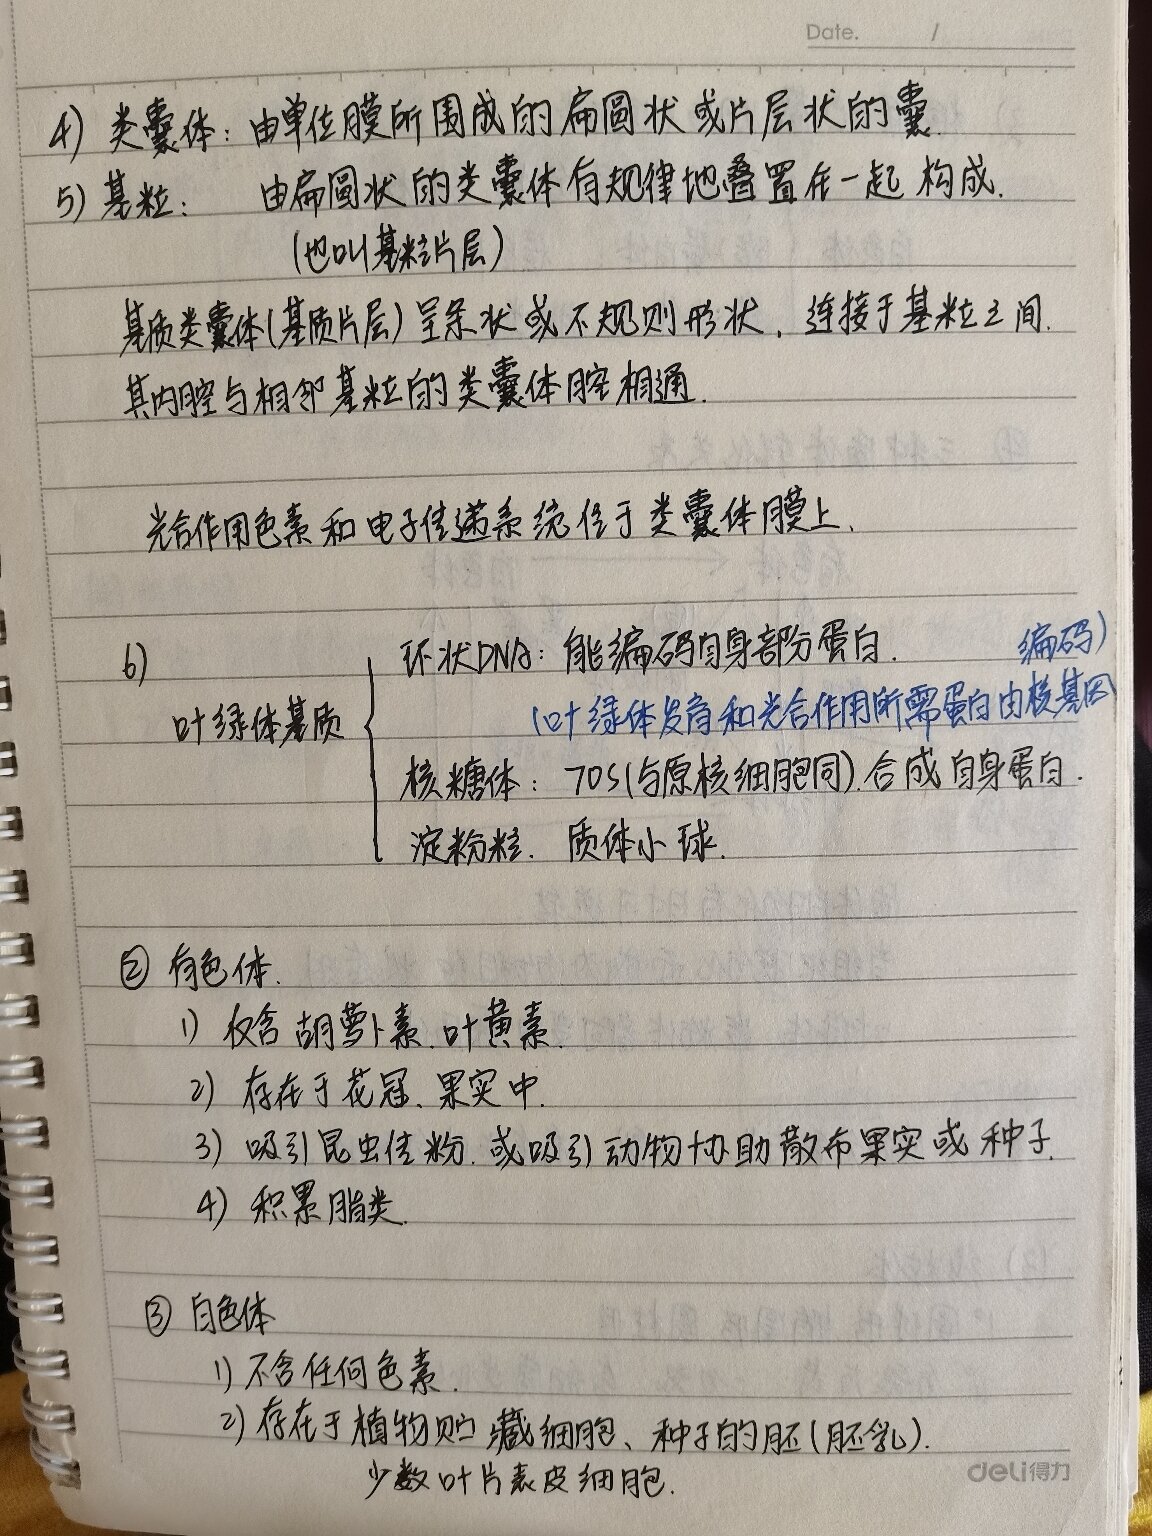 Date. /
4) 类囊体：由单位膜所围成的扁圆状或片层状的囊.
5) 基粒： 由扁圆状的类囊体有规律地叠置在一起构成.
(也叫基粒片层)
基质类囊体(基质片层)呈条状或不规则形状，连接于基粒之间.
其内腔与相邻基粒的类囊体腔相通.
光合作用色素和电子传递系统位于类囊体膜上.
6)
叶绿体基质
环状DNA：能编码自身部分蛋白.
(叶绿体发育和光合作用所需蛋白由核基因
编码)
核糖体：70S(与原核细胞同).合成自身蛋白.
淀粉粒. 质体小球.
② 有色体.
1) 仅含胡萝卜素.叶黄素.
2) 存在于花冠、果实中.
3) 吸引昆虫传粉.或吸引动物协助散布果实或种子.
4) 积累脂类.
③ 白色体
1) 不含任何色素.
2) 存在于植物贮藏细胞、种子的胚(胚乳).
少数叶片表皮细胞.
deli得力